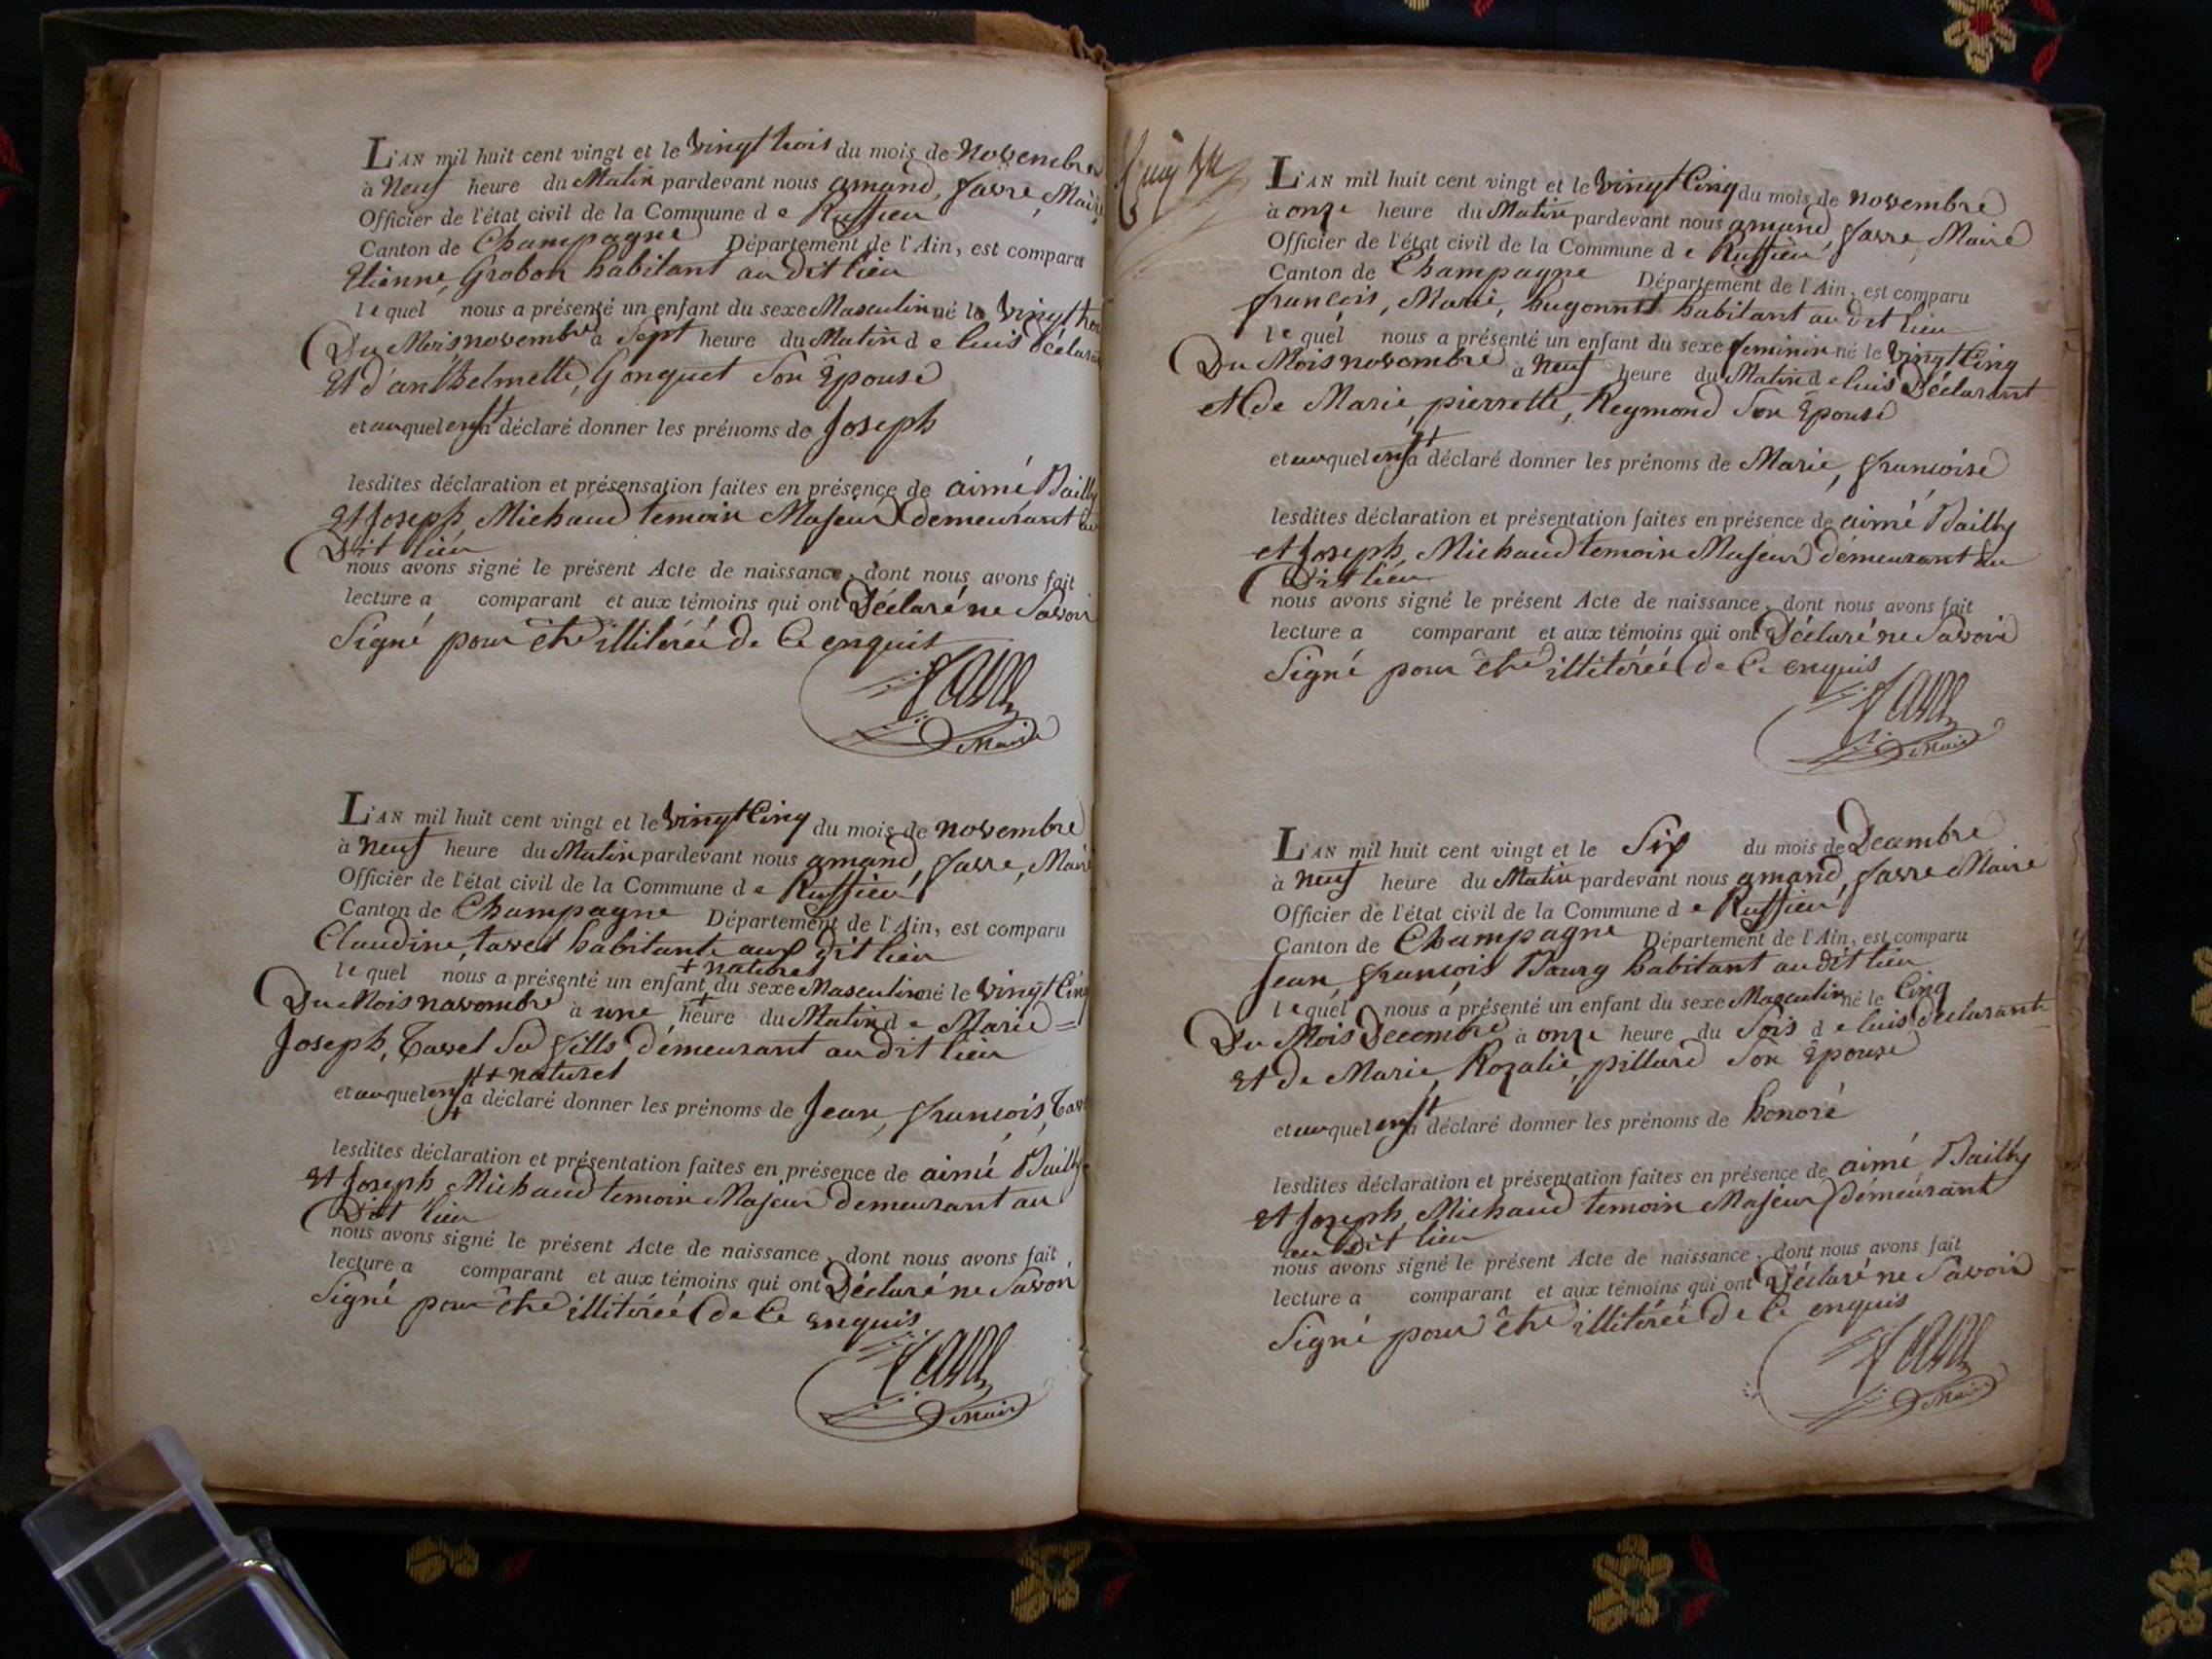 L'AN mil huit cent vingt et le vingt trois du mois de novembre
à Neuf heure du Matin pardevant nous amand, favre, Maire
Officier de l'état civil de la Commune d e Ruffieu
Canton de Champagne Département de l'Ain, est comparu
Etienne, Grobon habitant au dit lieu
le quel nous a présenté un enfant du sexe Masculin né le vingt trois
Du Mois novembre à Sept heure du Matin d e luis Déclarant
Et d'anthelmette, Gonguet Son Epouse
et auquel enft a déclaré donner les prénoms de Joseph
lesdites déclaration et présensation faites en présence de aimé Bailly
Et Joseph, Michaud temoin Majeur demeurant au
Dit lieu
nous avons signé le présent Acte de naissance, dont nous avons fait
lecture a comparant et aux témoins qui ont Déclaré ne Savoir
Signé pour être illitérée de Ce enquit
favre
Maire
L'AN mil huit cent vingt et le vingt Cinq du mois de novembre
à Neuf heure du Matin pardevant nous amand, favre, Maire
Officier de l'état civil de la Commune d e Ruffieu
Canton de Champagne Département de l'Ain, est comparu
Claudine, tavel habitante au dit lieu
+ naturel
le quel nous a présenté un enfant du sexe Masculin né le vingt Cinq
Du Mois novembre à une heure du Matin d e Marie =
Joseph, Tavel Sa fille démeurant au dit lieu
+ naturel
et auquel enft a déclaré donner les prénoms de Jean, françois, Tav
lesdites déclaration et présentation faites en présence de aimé Bailly
Et Joseph, Michaud temoin Majeur demeurant au
Dit lieu
nous avons signé le présent Acte de naissance, dont nous avons fait
lecture a comparant et aux témoins qui ont Déclaré ne Savoir
Signé pour être illitérée de Ce enquis
favre
Maire
L'AN mil huit cent vingt et le vingt Cinq du mois de novembre
à onze heure du Matin pardevant nous amand, favre, Maire
Officier de l'état civil de la Commune d e Ruffieu
Canton de Champagne Département de l'Ain, est comparu
françois, Marie, hugonnet habitant au dit lieu
le quel nous a présenté un enfant du sexe feminin né le vingt Cinq
Du Mois novembre à neuf heure du Matin d e luis Déclarant
et de Marie, pierrette, Reymond Son Epouse
et auquel enft a déclaré donner les prénoms de Marie, françoise
lesdites déclaration et présentation faites en présence de aimé Bailly
et Joseph, Michaud temoin Majeur démeurant au
Dit lieu
nous avons signé le présent Acte de naissance, dont nous avons fait
lecture a comparant et aux témoins qui ont Déclaré ne Savoir
Signé pour être illitérée de Ce enquis
favre
Maire
L'AN mil huit cent vingt et le Six du mois de Decembre
à neuf heure du Matin pardevant nous amand, favre Maire
Officier de l'état civil de la Commune d e Ruffieu
Canton de Champagne Département de l'Ain, est comparu
Jean françois Baury habitant au dit lieu
le quel nous a présenté un enfant du sexe Masculin né le Cinq
Du Mois Decembre à onze heure du Soir d e luis déclarant
Et de Marie, Rozalie, pillard Son Epouse
et auquel enft a déclaré donner les prénoms de honoré
lesdites déclaration et présentation faites en présence de aimé Bailly
Et Joseph, Michaud temoin Majeur démeurant
au Dit lieu
nous avons signé le présent Acte de naissance, dont nous avons fait
lecture a comparant et aux témoins qui ont Déclaré ne Savoir
Signé pour être illitérée de Ce enquis
favre
Maire